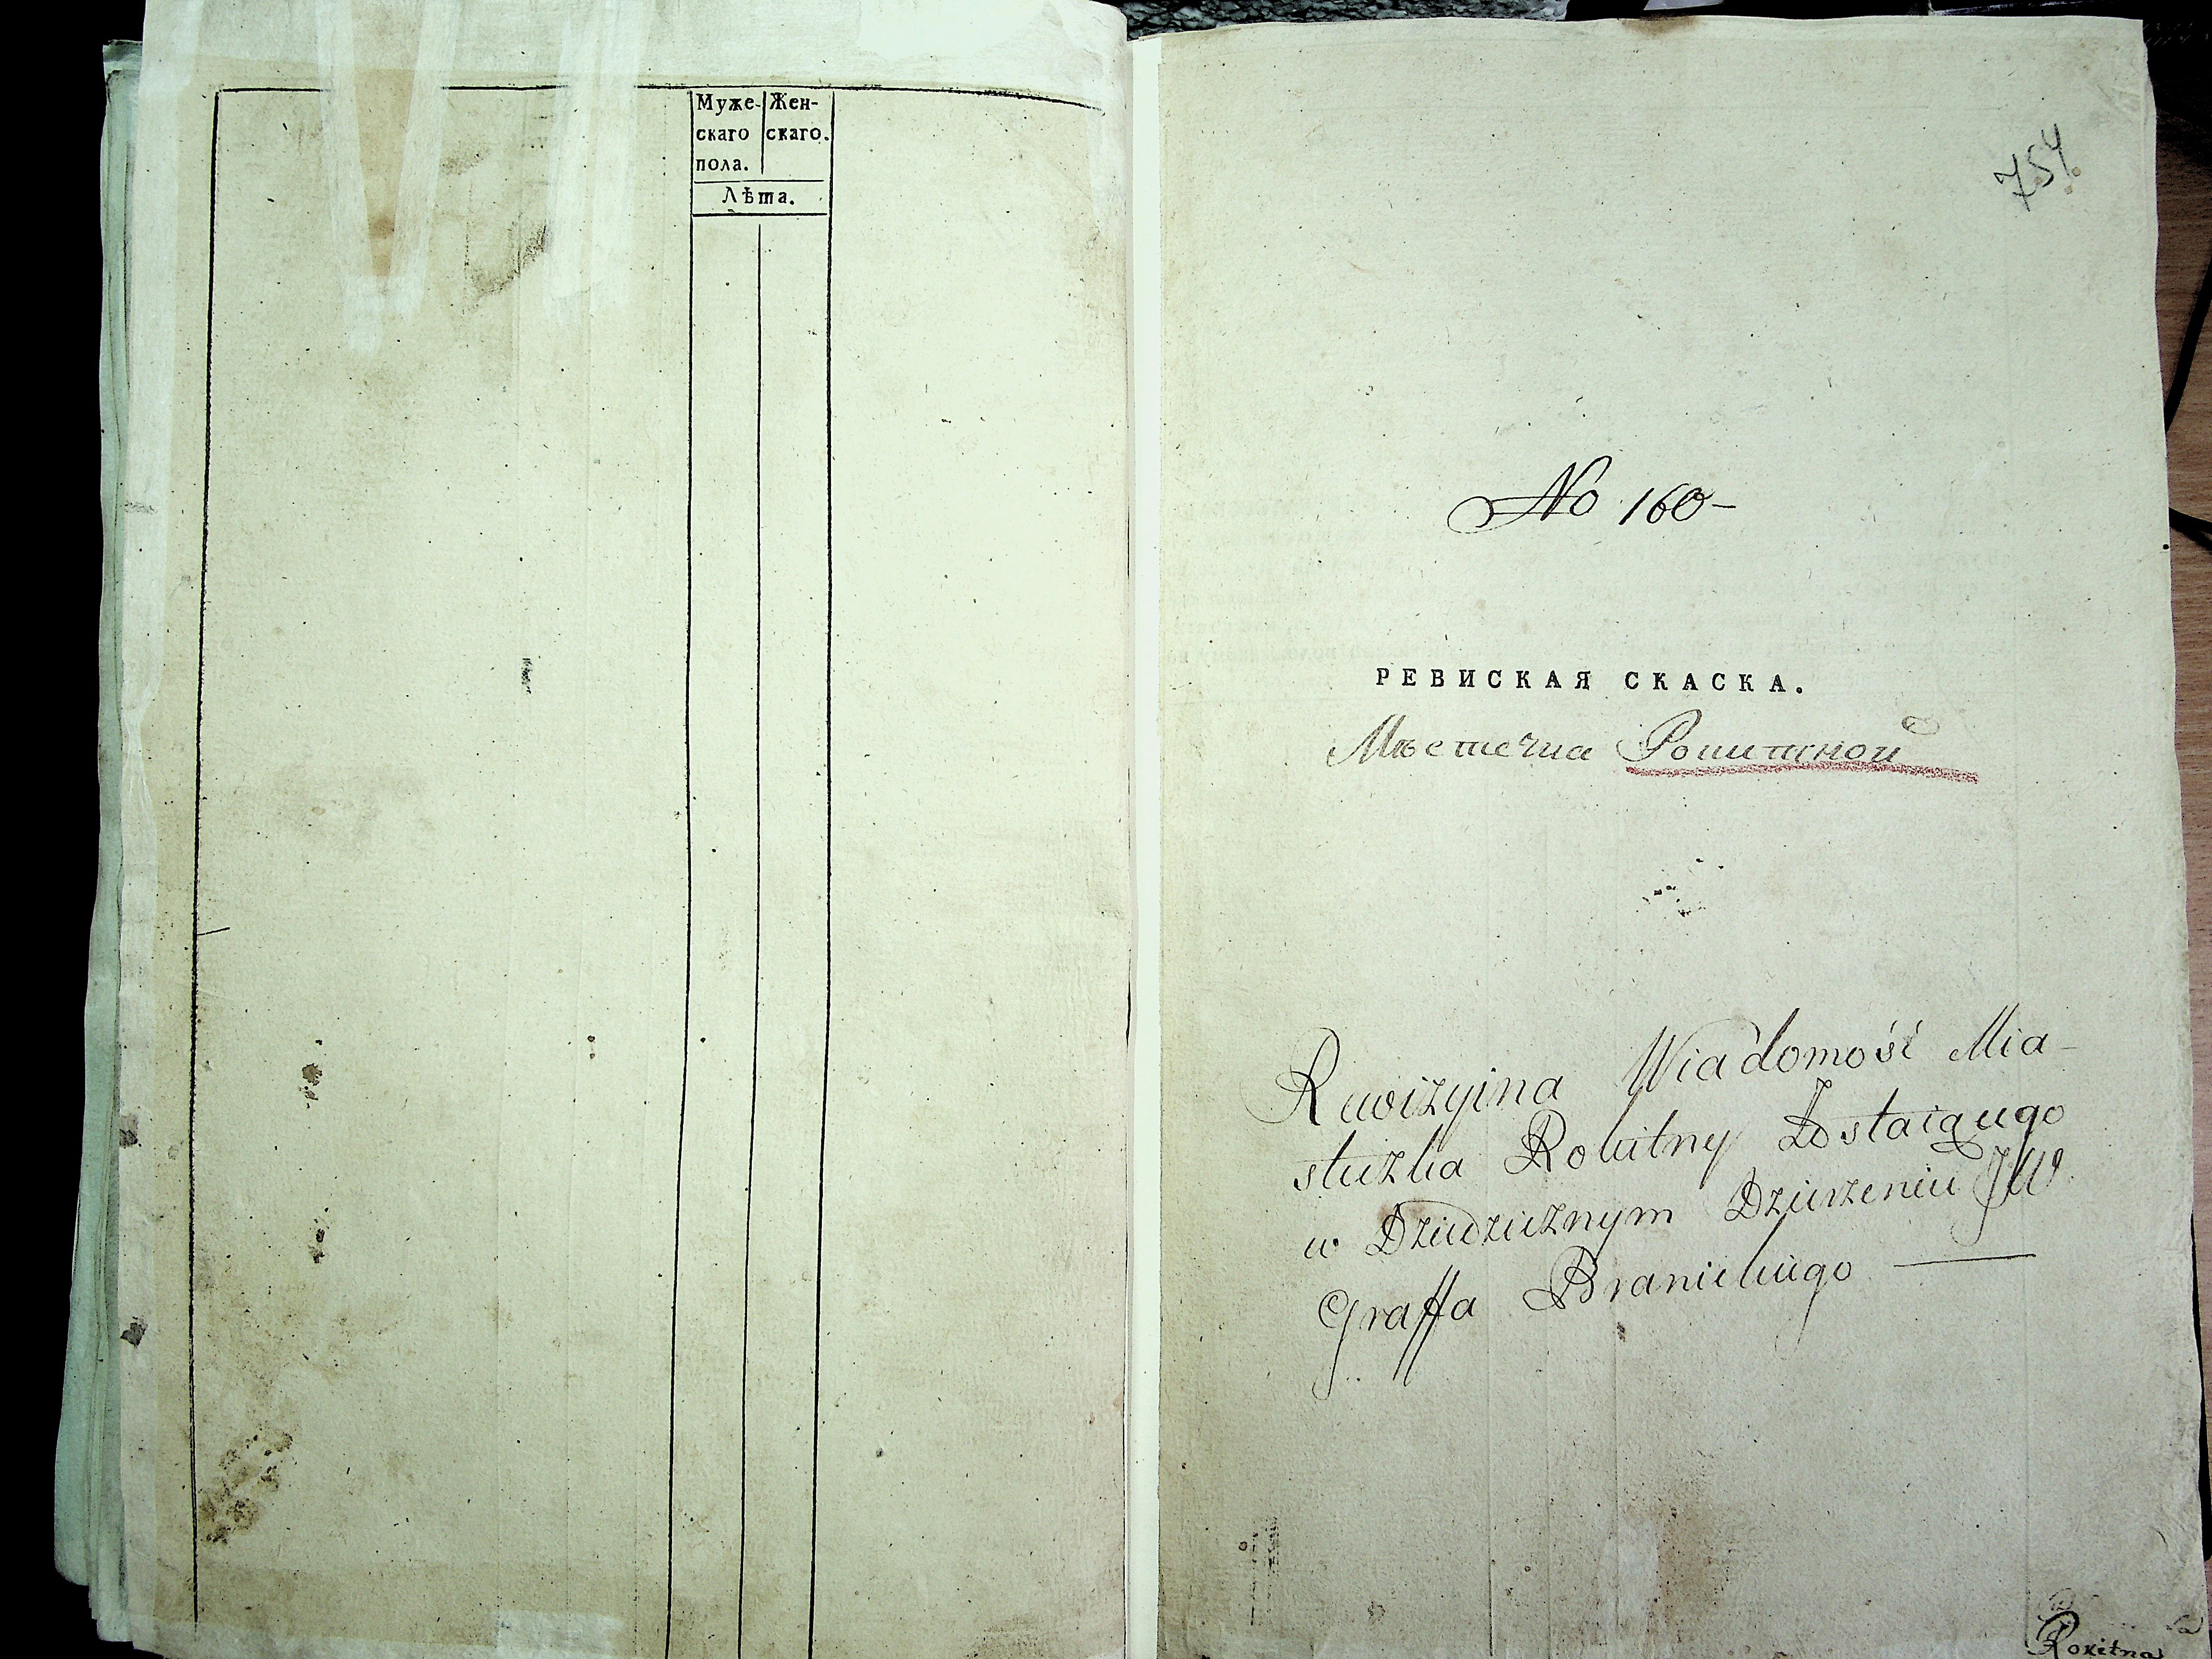 Муже- Жен-
скаго скаго.
пола.
Лѣта.
754.
No 160-
РЕВИСКАЯ СКАСКА.
Мѣстечка Рокитной
Rewizyina Wiadomość Mia-
steczka Rokitny Zostaiącego
w Dziedzicznym Dzierżeniu JW
Graffa Branickiego
Rokitna